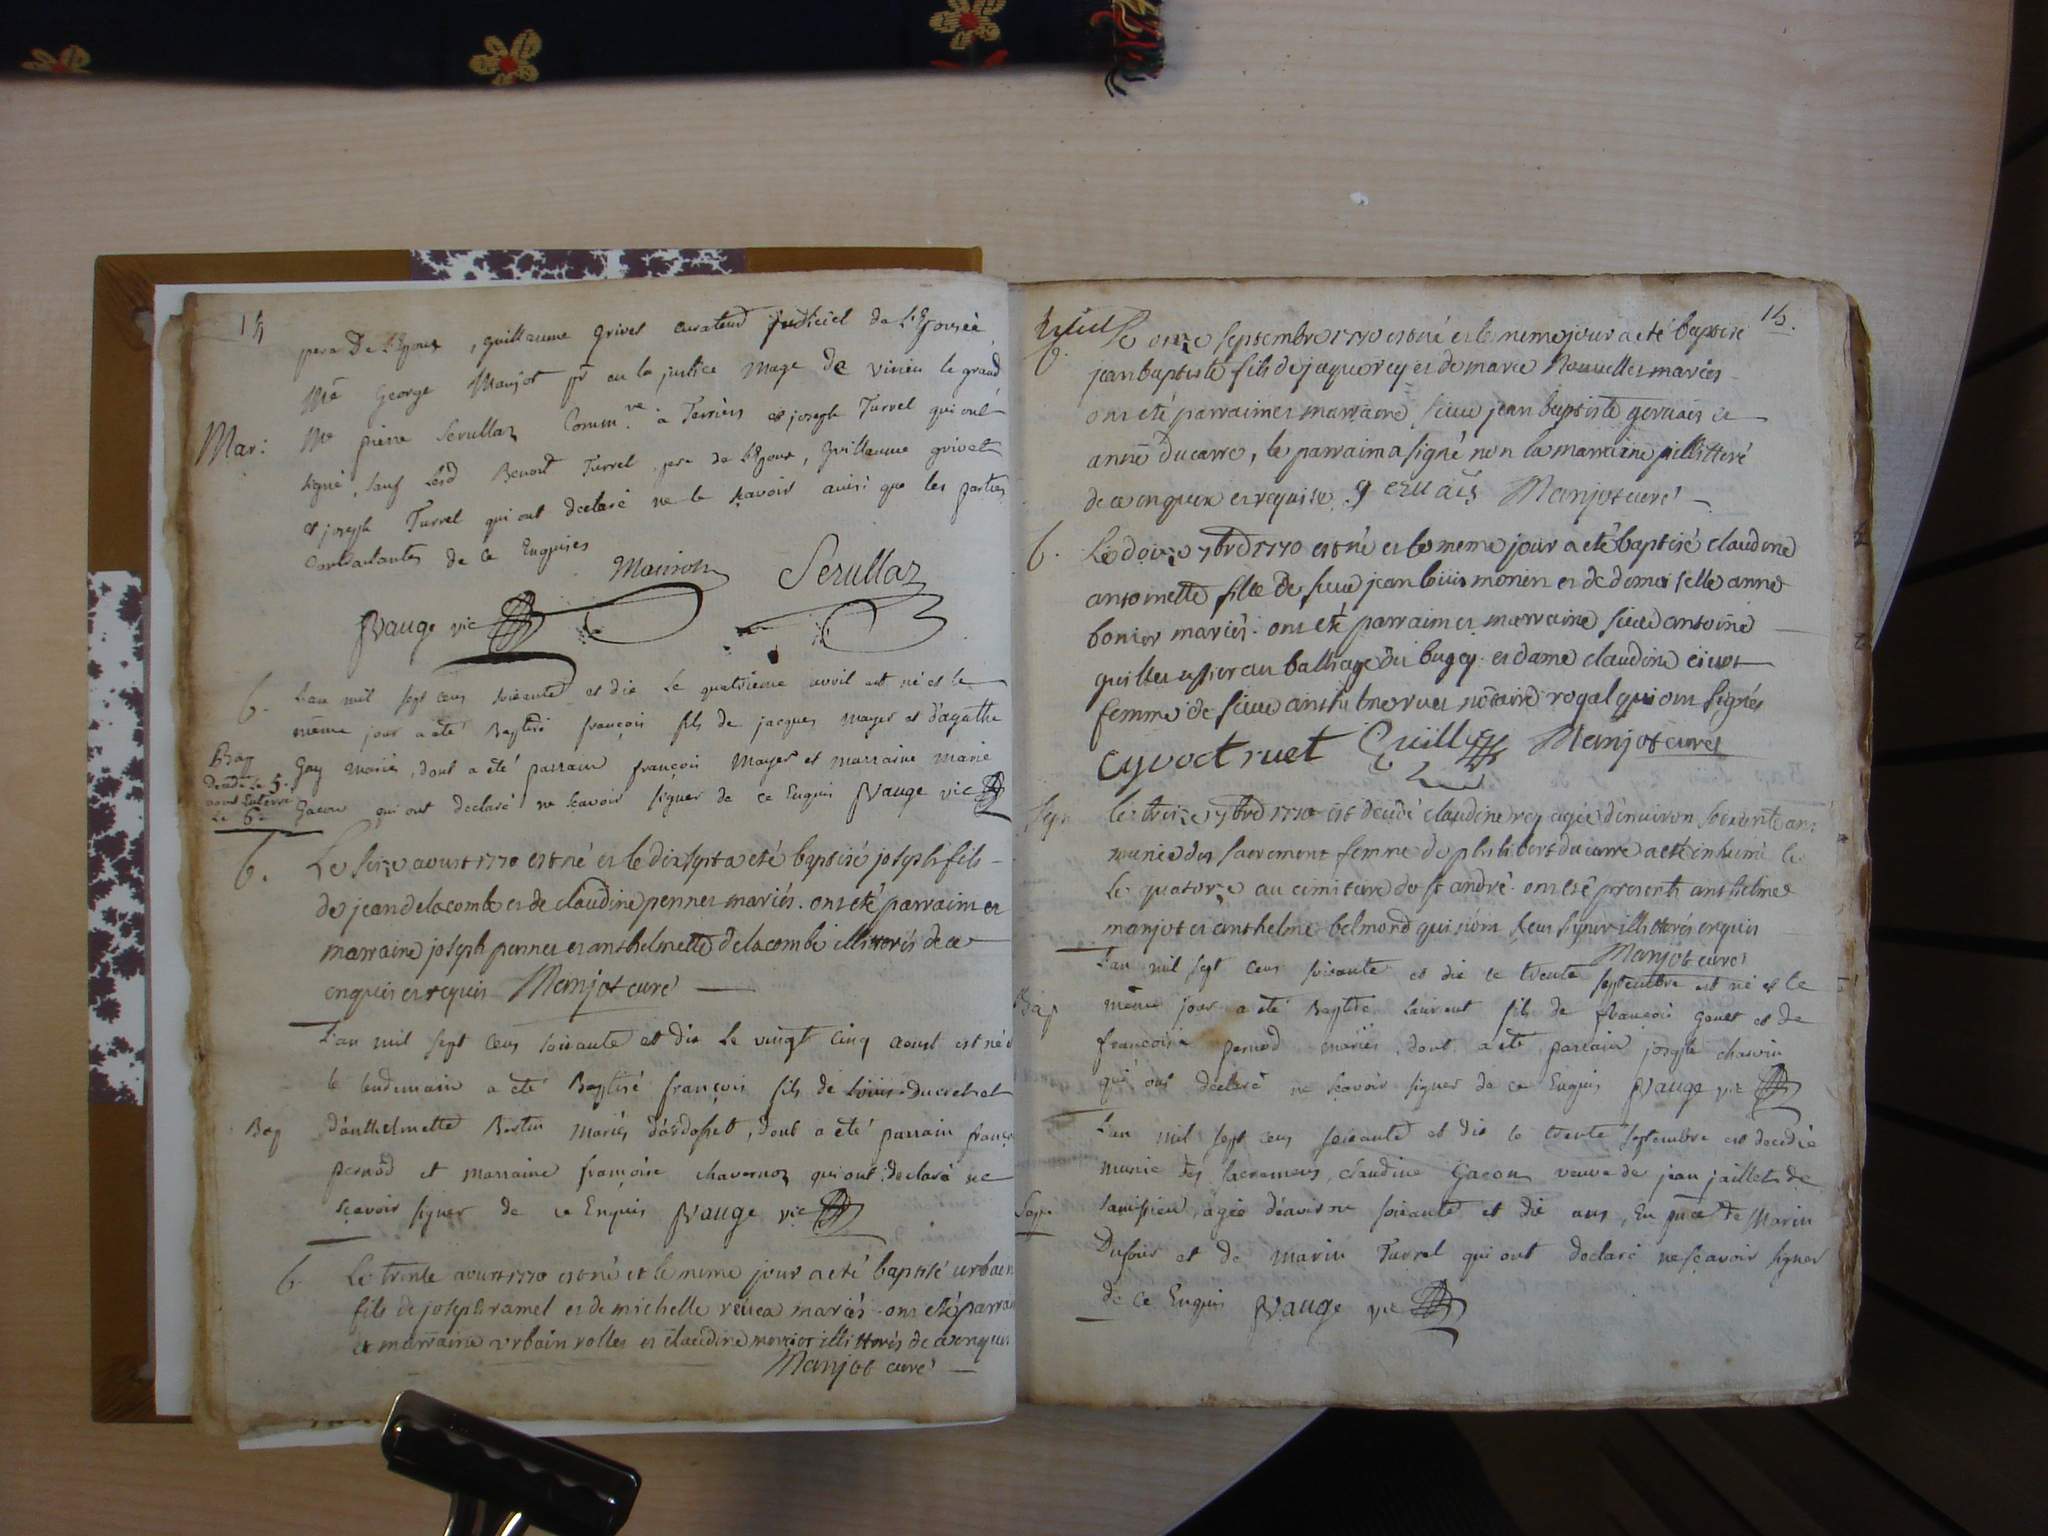 14
pere De L'Epoux, guillaume grivet curateur judiciel de L'Epouzée
Me George Manjot pr en la justice mage de virieu le grand
Mar: Me pierre Serullaz Comm.re à Terriers et joseph Turrel qui ont
signé, sauf Led Benoit Turrel pere de L'Epoux, guillaume grivet
et joseph Turrel qui ont declaré ne le sçavoir ainsi que les parties
Contractantes de ce Enquises
Serullaz
Vauge vic
b. L'an mil sept cens soixante et dix Le quatrieme avril est né et le
même jour a été Baptisé françois fils de jacques mayer et d'agathe
Bap
Gay mariés, dont a été parrain françois Mayer et marraine marie
decedé Le 5.
aout Enterré
Le 6e
Gacon qui ont declaré ne sçavoir signer de ce Enquis Vauge vic
b. Le seize aoust 1770 est né et le dix sept a eté baptisé joseph fils
de jean delacombe et de claudine pennet mariés. ont eté parrain et
marraine joseph pennet et anthelmette delacombe illitterés de ce
enquis et requis Manjot curé
L'an mil sept cens soixante et dix Le vingt cinq aoust est né et
le lendemain a été Baptisé françois fils de Ducret et
Bap d'anthelmette Bertin Mariés d'ardosset, dont a été parrain franç
pernod et marraine françoise chavernoz qui ont declaré ne
sçavoir signer de ce Enquis Vauge vic
b. Le trente aoust 1770 est né et le meme jour a eté baptisé urbain
fils de joseph ramel et de michelle mariés ont eté parrain
et marraine urbain rollet et claudine illitterés de ce enquis
Manjot curé
15.
b. Le onze septembre 1770 est né et le meme jour a eté baptisé
jean baptiste fils de jaque rey et de marie mariés
ont eté parrain et marraine sieur jean baptiste gervais et
anne ducarre, le parrain a signé non la marraine illitteré
de ce enquise et requise gervais Manjot curé
b. Le doize 7bre 1770 est né et le meme jour a eté baptisé claudine
antoinette fille de sieur jean louis monin et de demoiselle anne
mariés. ont eté parrain et marraine sieur antoine
au balliage du bugey et dame claudine
femme de sieur anthelme ruet notaire royal qui ont signés
cyvoct ruet Manjot curé
Sep. le treize 7bre 1770 est decedé claudine rey agée d'environ soixante ans
munie des sacrement femme de philibert ducarre a eté inhumé le
Le quatorze au cimitiere de st andré. ont eté present anthelme
manjot et anthelme belmond qui n'ont sceu signer illitterés enquis
Manjot curé
L'an mil sept cens soixante et dix le trente septembre est né et le
Bap même jour a été Baptisé Laurent fils de françois et de
françoise pernod mariés, dont a été parrain joseph
qui ont declaré ne sçavoir signer de ce Enquis Vauge vic
L'an mil sept cens soixante et dix le trente septembre est decedée
munie des sacremens claudine Gacon veuve de jean jaillet de
Sep. agée d'environ soixante et dix ans, En pnce de Marin
Dufour et de marin Turrel qui ont declaré ne sçavoir signer
de ce Enquis Vauge vic